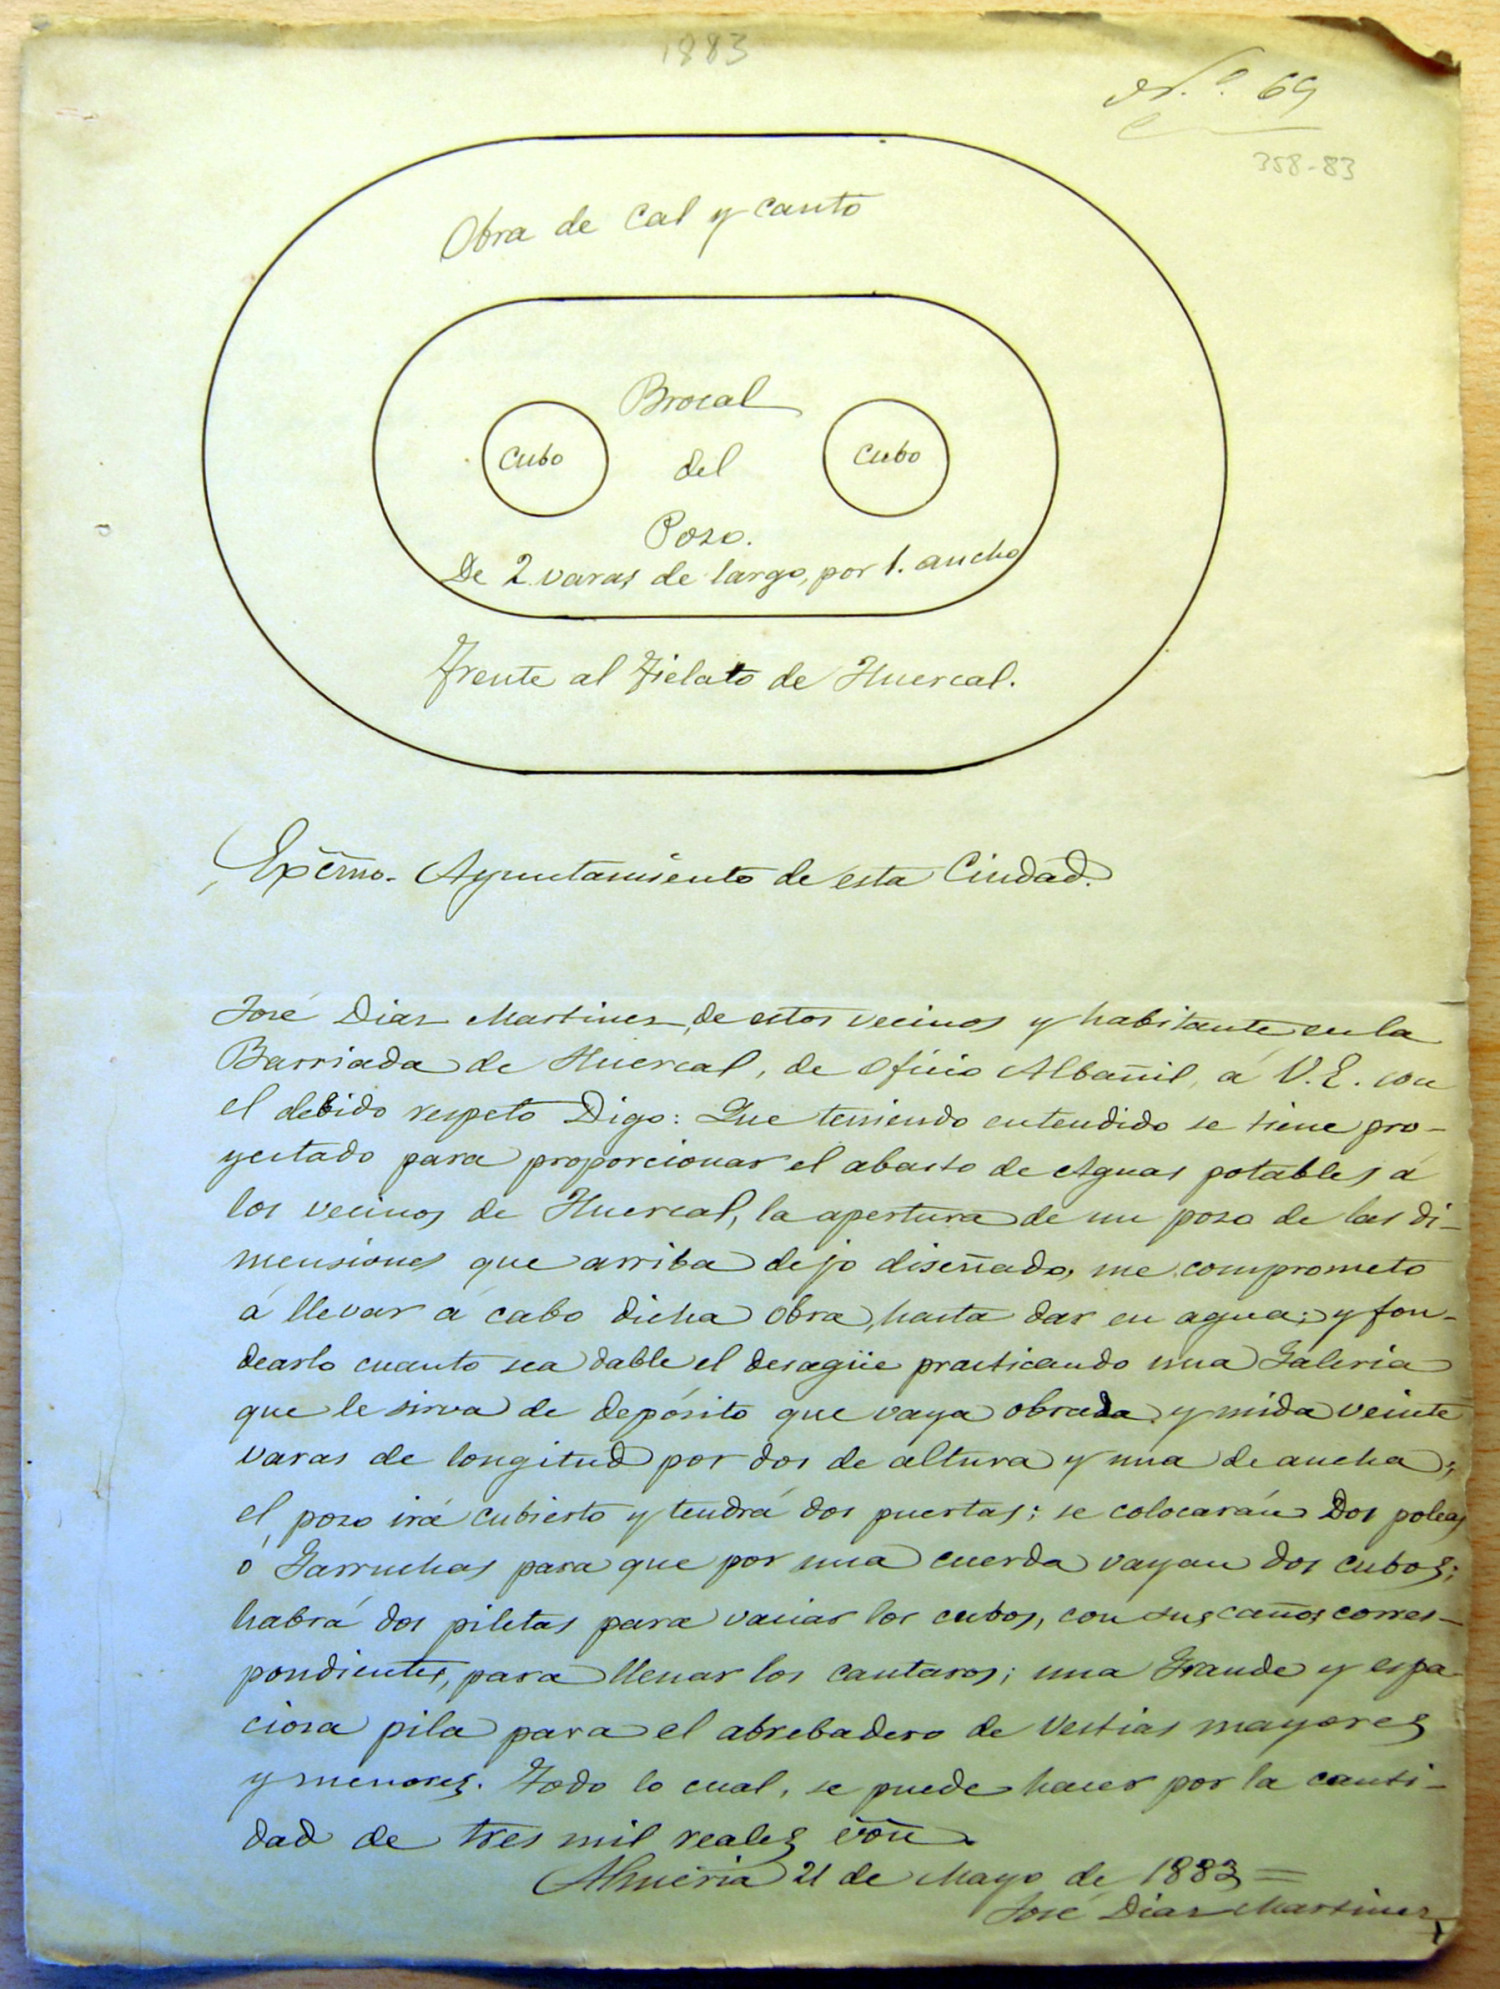 1883
N.º 69
358-83
Obra de cal y canto
Brocal
Cubo
del
Cubo
Pozo.
De 2 varas de largo, por 1. ancho
Frente al Fielato de Huercal.
Excmo. Ayuntamiento de esta Ciudad.
José Diaz Martinez, de estos vecinos y habitante en la
Barriada de Huercal, de oficio Albañil, á V.E. con
el debido respeto Digo: Que teniendo entendido se tiene pro-
yectado para proporcionar el abasto de Aguas potables á
los vecinos de Huercal, la apertura de un pozo de las di-
mensiones que arriba dejo diseñado, me comprometo
á llevar á cabo dicha obra, hasta dar en agua; y fon-
dearlo cuanto sea dable el desagüe practicando una Galeria
que le sirva de depósito que vaya obrada y mida veinte
varas de longitud por dos de altura y una de ancha;
el pozo irá cubierto y tendrá dos puertas; se colocarán dos poleas
ó Garruchas para que por una cuerda vayan dos cubos;
habrá dos piletas para vaciar los cubos, con sus caños corres-
pondientes, para llenar los cantaros; una Grande y espa-
ciosa pila para el abrebadero de vestias mayores
y menores. Todo lo cual, se puede hacer por la canti-
dad de tres mil reales võn.
Almeria 21 de Mayo de 1883=
José Diaz Martinez